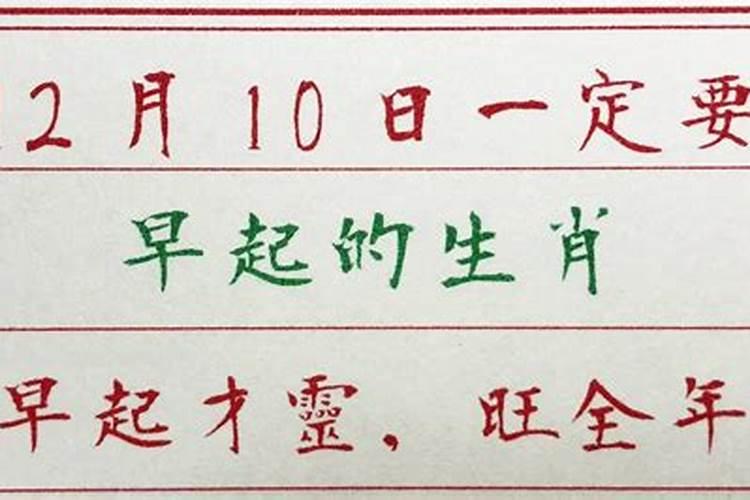 2月10日一定要
早起的生肖
早起才靈，旺全年